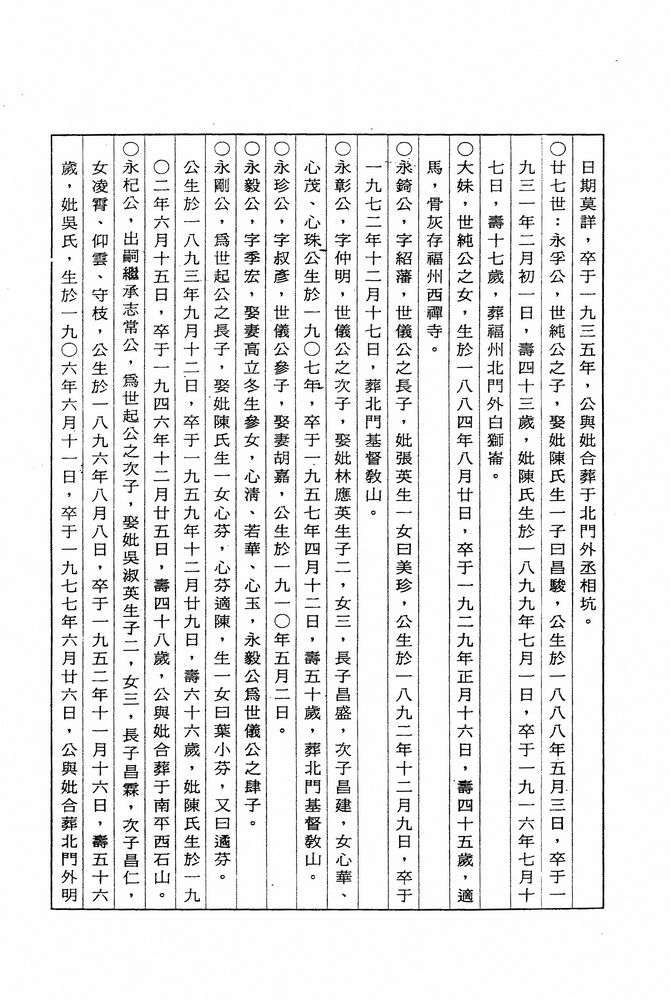 日期莫詳，卒于一九三五年，公與妣合葬于北門外丞相坑。
〇廿七世：永孚公，世純公之子，娶妣陳氏生一子曰昌駿，公生於一八八八年五月三日，卒于一
九三一年二月初一日，壽四十三歲，妣陳氏生於一八九九年七月一日，卒于一九一六年七月十
七日，壽十七歲，葬福州北門外白獅崙。
〇大妹，世純公之女，生於一八八四年八月廿日，卒于一九二九年正月十六日，壽四十五歲，適
馬，骨灰存福州西禪寺。
〇永錡公，字紹藩，世儀公之長子，妣張英生一女曰美珍，公生於一八九二年十二月九日，卒于
一九七二年十二月十七日，葬北門基督教山。
〇永彰公，字仲明，世儀公之次子，娶妣林應英生子二，女三，長子昌盛，次子昌建，女心華、
心茂、心珠公生於一九〇七年，卒于一九五七年四月十二日，壽五十歲，葬北門基督教山。
〇永珍公，字叔彥，世儀公參子，娶妻胡嘉，公生於一九一〇年五月二日。
〇永毅公，字季宏，娶妻高立冬生參女，心淸、若華、心玉，永毅公爲世儀公之肆子。
〇永剛公，爲世起公之長子，娶妣陳氏生一女心芬，心芬適陳，生一女曰葉小芬，又曰遹芬。
公生於一八九三年九月十二日，卒于一九五九年十二月廿九日，壽六十六歲，妣陳氏生於一九
〇二年六月十五日，卒于一九四六年十二月廿五日，壽四十八歲，公與妣合葬于南平西石山。
〇永杞公，出嗣繼承志常公，爲世起公之次子，娶妣吳淑英生子二，女三，長子昌霖，次子昌仁，
女凌霄、仰雲、守枝，公生於一八九六年八月八日，卒于一九五二年十一月十六日，壽五十六
歲，妣吳氏，生於一九〇六年六月十一日，卒于一九七七年六月廿六日，公與妣合葬北門外明